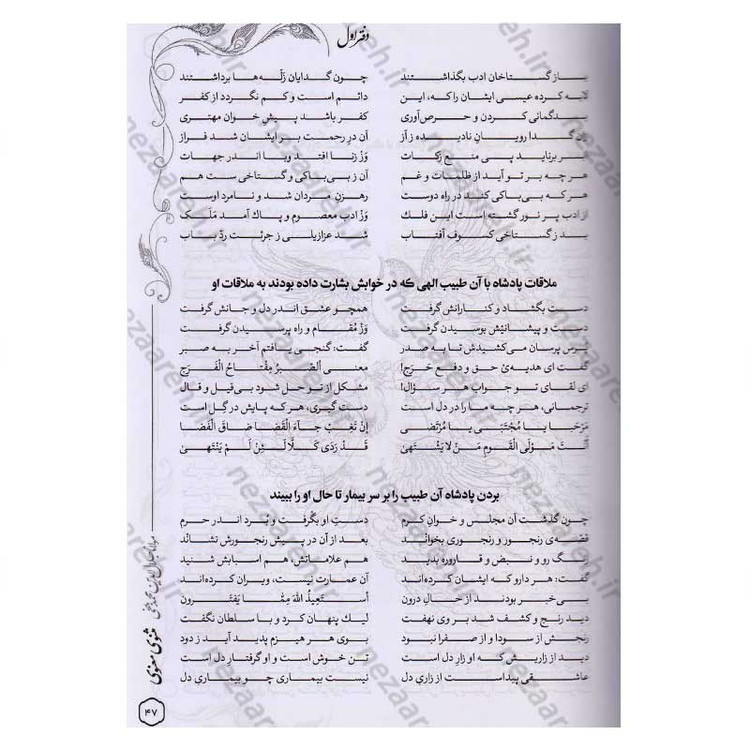 دفتر اول
باز گستاخان ادب بگذاشتند چون گدایان زَلّه‌ها برداشتند
لابه کرده عیسی ایشان را که، این دائم است و کم نگردد از کفر
بدگمانی کردن و حرص‌آوری کفر باشد پیشِ خوان مهتری
گدا رویان نادیده ز آز آن درِ رحمت بر ایشان شد فراز
ابر برناید پی منع زکات وَز زنا افتد وبا اندر جهات
هر چه بر تو آید از ظلمات و غم آن ز بی‌باکی و گستاخی ست هم
هر که بی‌باکی کند در راه دوست رهزن مردان شد و نامرد اوست
از ادب پر نور گشته است این فلک وَز ادب معصوم و پاک آمد مَلَک
بد ز گستاخی کسوف آفتاب شد عزازیلی ز جرئت ردّ باب
ملاقات پادشاه با آن طبیب الهی که در خوابش بشارت داده بودند به ملاقات او
دست بگشاد و کنارانش گرفت همچو عشق اندر دل و جانش گرفت
دست و پیشانیش بوسیدن گرفت وَز مُقام و راه پرسیدن گرفت
پرس پرسان می‌کشیدش تا به صدر گفت: گنجی یافتم آخر به صبر
گفت ای هدیهٔ حق و دفع حَرَج! معنی اَلصَّبرُ مِفْتاحُ الْفَرَج
ای لقای تو جواب هر سؤال! مشکل از تو حل شود بی‌قیل و قال
ترجمانی، هر چه ما را در دل است دست گیری، هر که پایش در گِل است
مَرْحَبا یا مُجْتَبیٰ یا مُرْتَضیٰ اِنْ تَغِبْ جاءَ الْقَضا ضاقَ الْفَضا
اَنْتَ مَوْلَی الْقَوم مَنْ لا یَشْتَهیٰ قَدْ رَدیٰ کَلّا لَئِنْ لَمْ یَنْتَهیٰ
بردن پادشاه آن طبیب را بر سر بیمار تا حال او را ببیند
چون گذشت آن مجلس و خوانِ کرم دستِ او بگرفت و بُرد اندر حرم
قصهٔ رنجور و رنجوری بخواند بعد از آن در پیش رنجورش نشاند
رنگ رو و نبض و قاروره بدید هم علاماتش، هم اسبابش شنید
گفت: هر دارو که ایشان کرده‌اند آن عمارت نیست، ویران کرده‌اند
بی‌خبر بودند از حالِ درون اَستَعیذُ اللهَ مِمّا یَفتَرون
دید رنج و کشف شد بر وی نهفت لیک پنهان کرد و با سلطان نگفت
رنجش از سودا و از صفرا نبود بوی هر هیزم پدید آید ز دود
دید از زاریش که او زارِ دل است تن خوش است و او گرفتارِ دل است
عاشقی پیداست از زاریِ دل نیست بیماری چو بیماریِ دل
مثنوی معنوی
۴۷
nezaareh.ir